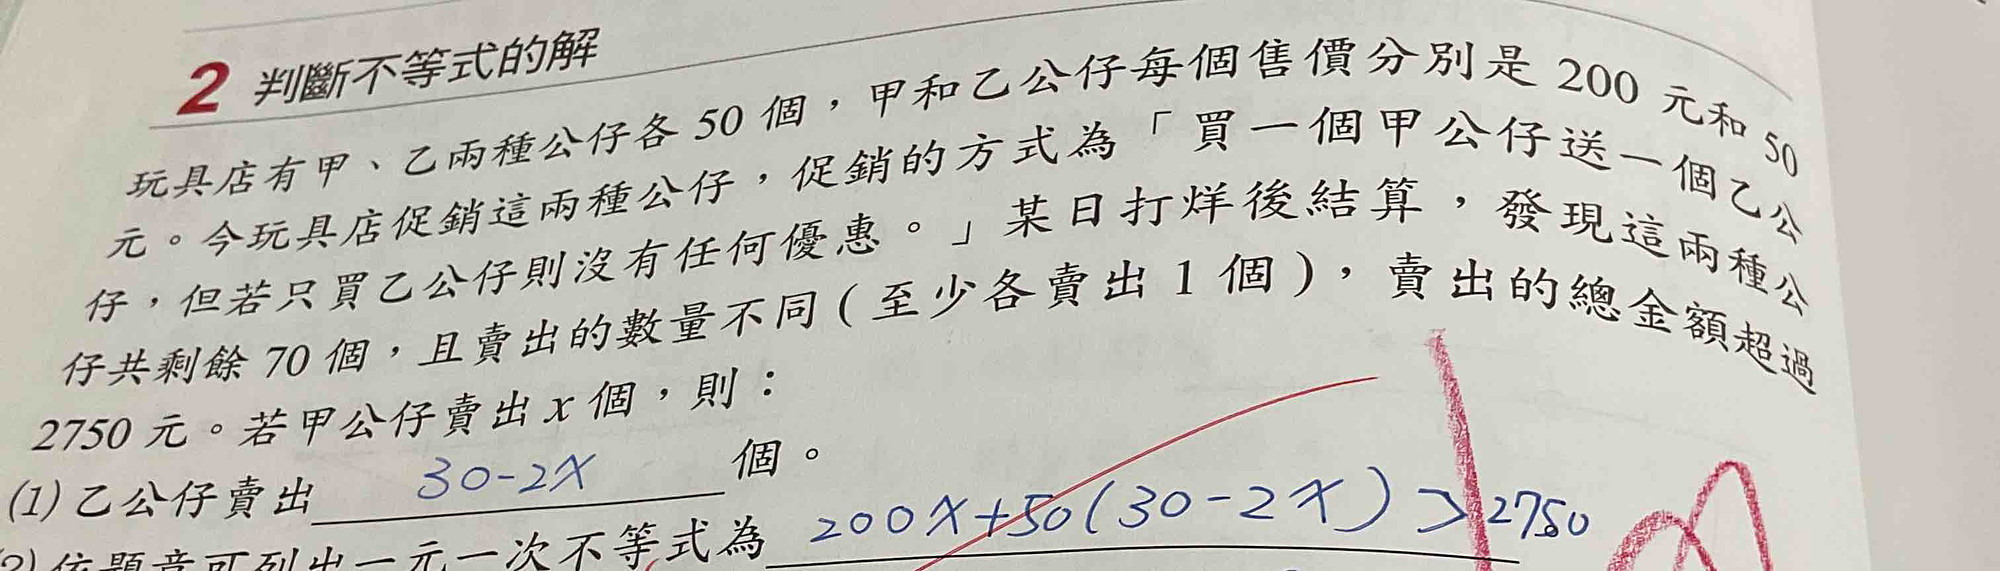 2 判斷不等式的解
玩具店有甲、乙兩種公仔各 50 個，甲和乙公仔每個售價分別是 200 元和 50
元。今玩具店促銷這兩種公仔，促銷的方式為「買一個甲公仔送一個乙公
仔，但若只買乙公仔則沒有任何優惠。」某日打烊後結算，發現這兩種公
仔共剩餘 70 個，且賣出的數量不同（至少各賣出 1 個），賣出的總金額超過
2750 元。若甲公仔賣出 x 個，則：
(1) 乙公仔賣出 30-2x 個。
(2) 依題意可列出一元一次不等式為 200x+50(30-2x)>2750